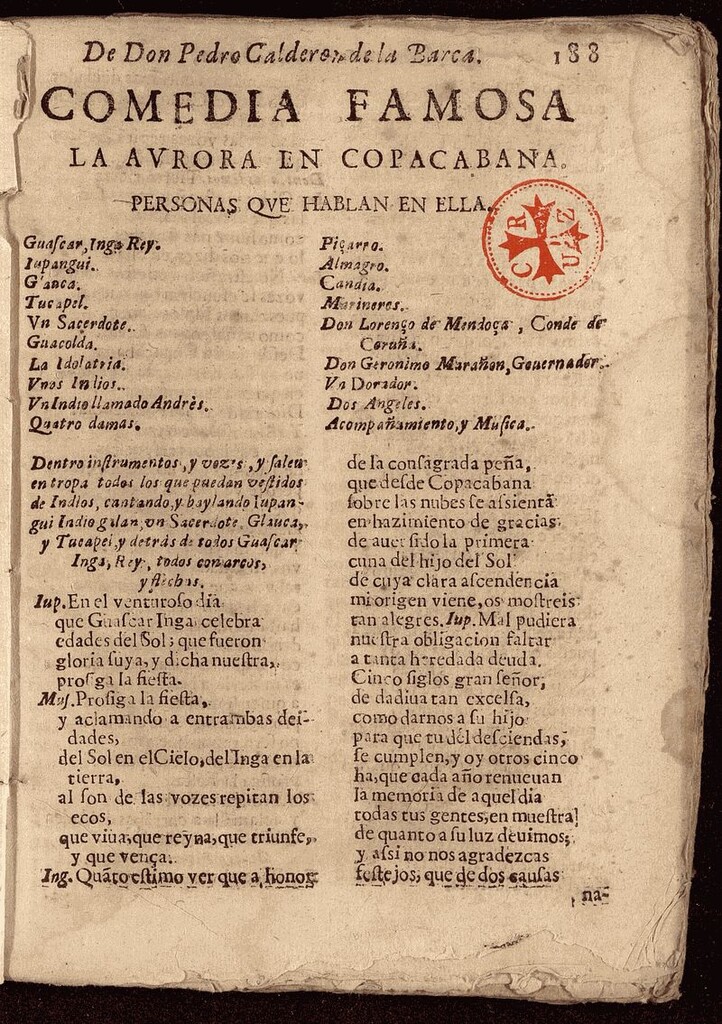 De Don Pedro Calderon de la Barca. 188
COMEDIA FAMOSA
LA AVRORA EN COPACABANA.
PERSONAS QVE HABLAN EN ELLA.
C R U Z
Guaſcar, Inga Rey.
Iupangui.
Glauca.
Tucapel.
Vn Sacerdote.
Guacolda.
La Idolatria.
Vnos Indios.
Vn Indio llamado Andrès.
Quatro damas.
Piçarro.
Almagro.
Candia.
Marineros.
Don Lorenço de Mendoça, Conde de
Coruña.
Don Geronimo Marañon, Gouernador.
Vn Dorador.
Dos Angeles.
Acompañamiento, y Muſica.
Dentro inſtrumentos, y vozes, y ſalen
en tropa todos los que puedan veſtidos
de Indios, cantando, y baylando Iupan-
gui Indio galan, vn Sacerdote, Glauca,
y Tucapel, y detràs de todos Guaſcar
Inga, Rey, todos con arcos,
y flechas.
Iup. En el venturoſo dia
que Guaſcar Inga celebra
edades del Sol; que fueron
gloria ſuya, y dicha nueſtra,
proſiga la fieſta.
Muſ. Proſiga la fieſta,
y aclamando a entrambas dei-
dades,
del Sol en el Cielo, del Inga en la
tierra,
al ſon de las vozes repitan los
ecos,
que viua, que reyna, que triunfe,
y que vença.
Ing. Quãto eſtimo ver que a honor
de la conſagrada peña,
que deſde Copacabana
ſobre las nubes ſe aſsienta
en hazimiento de gracias
de auer ſido la primera
cuna del hijo del Sol
de cuya clara aſcendencia
mi origen viene, os moſtreis
tan alegres. Iup. Mal pudiera
nueſtra obligacion faltar
a tanta heredada deuda.
Cinco ſiglos gran ſeñor,
de dadiua tan excelſa,
como darnos a ſu hijo
para que tu dèl deſciendas,
ſe cumplen, y oy otros cinco
ha, que cada año renueuan
la memoria de aquel dia
todas tus gentes, en mueſtra
de quanto a ſu luz deuimos;
y aſsi no nos agradezcas
feſtejos, que de dos cauſas
na-